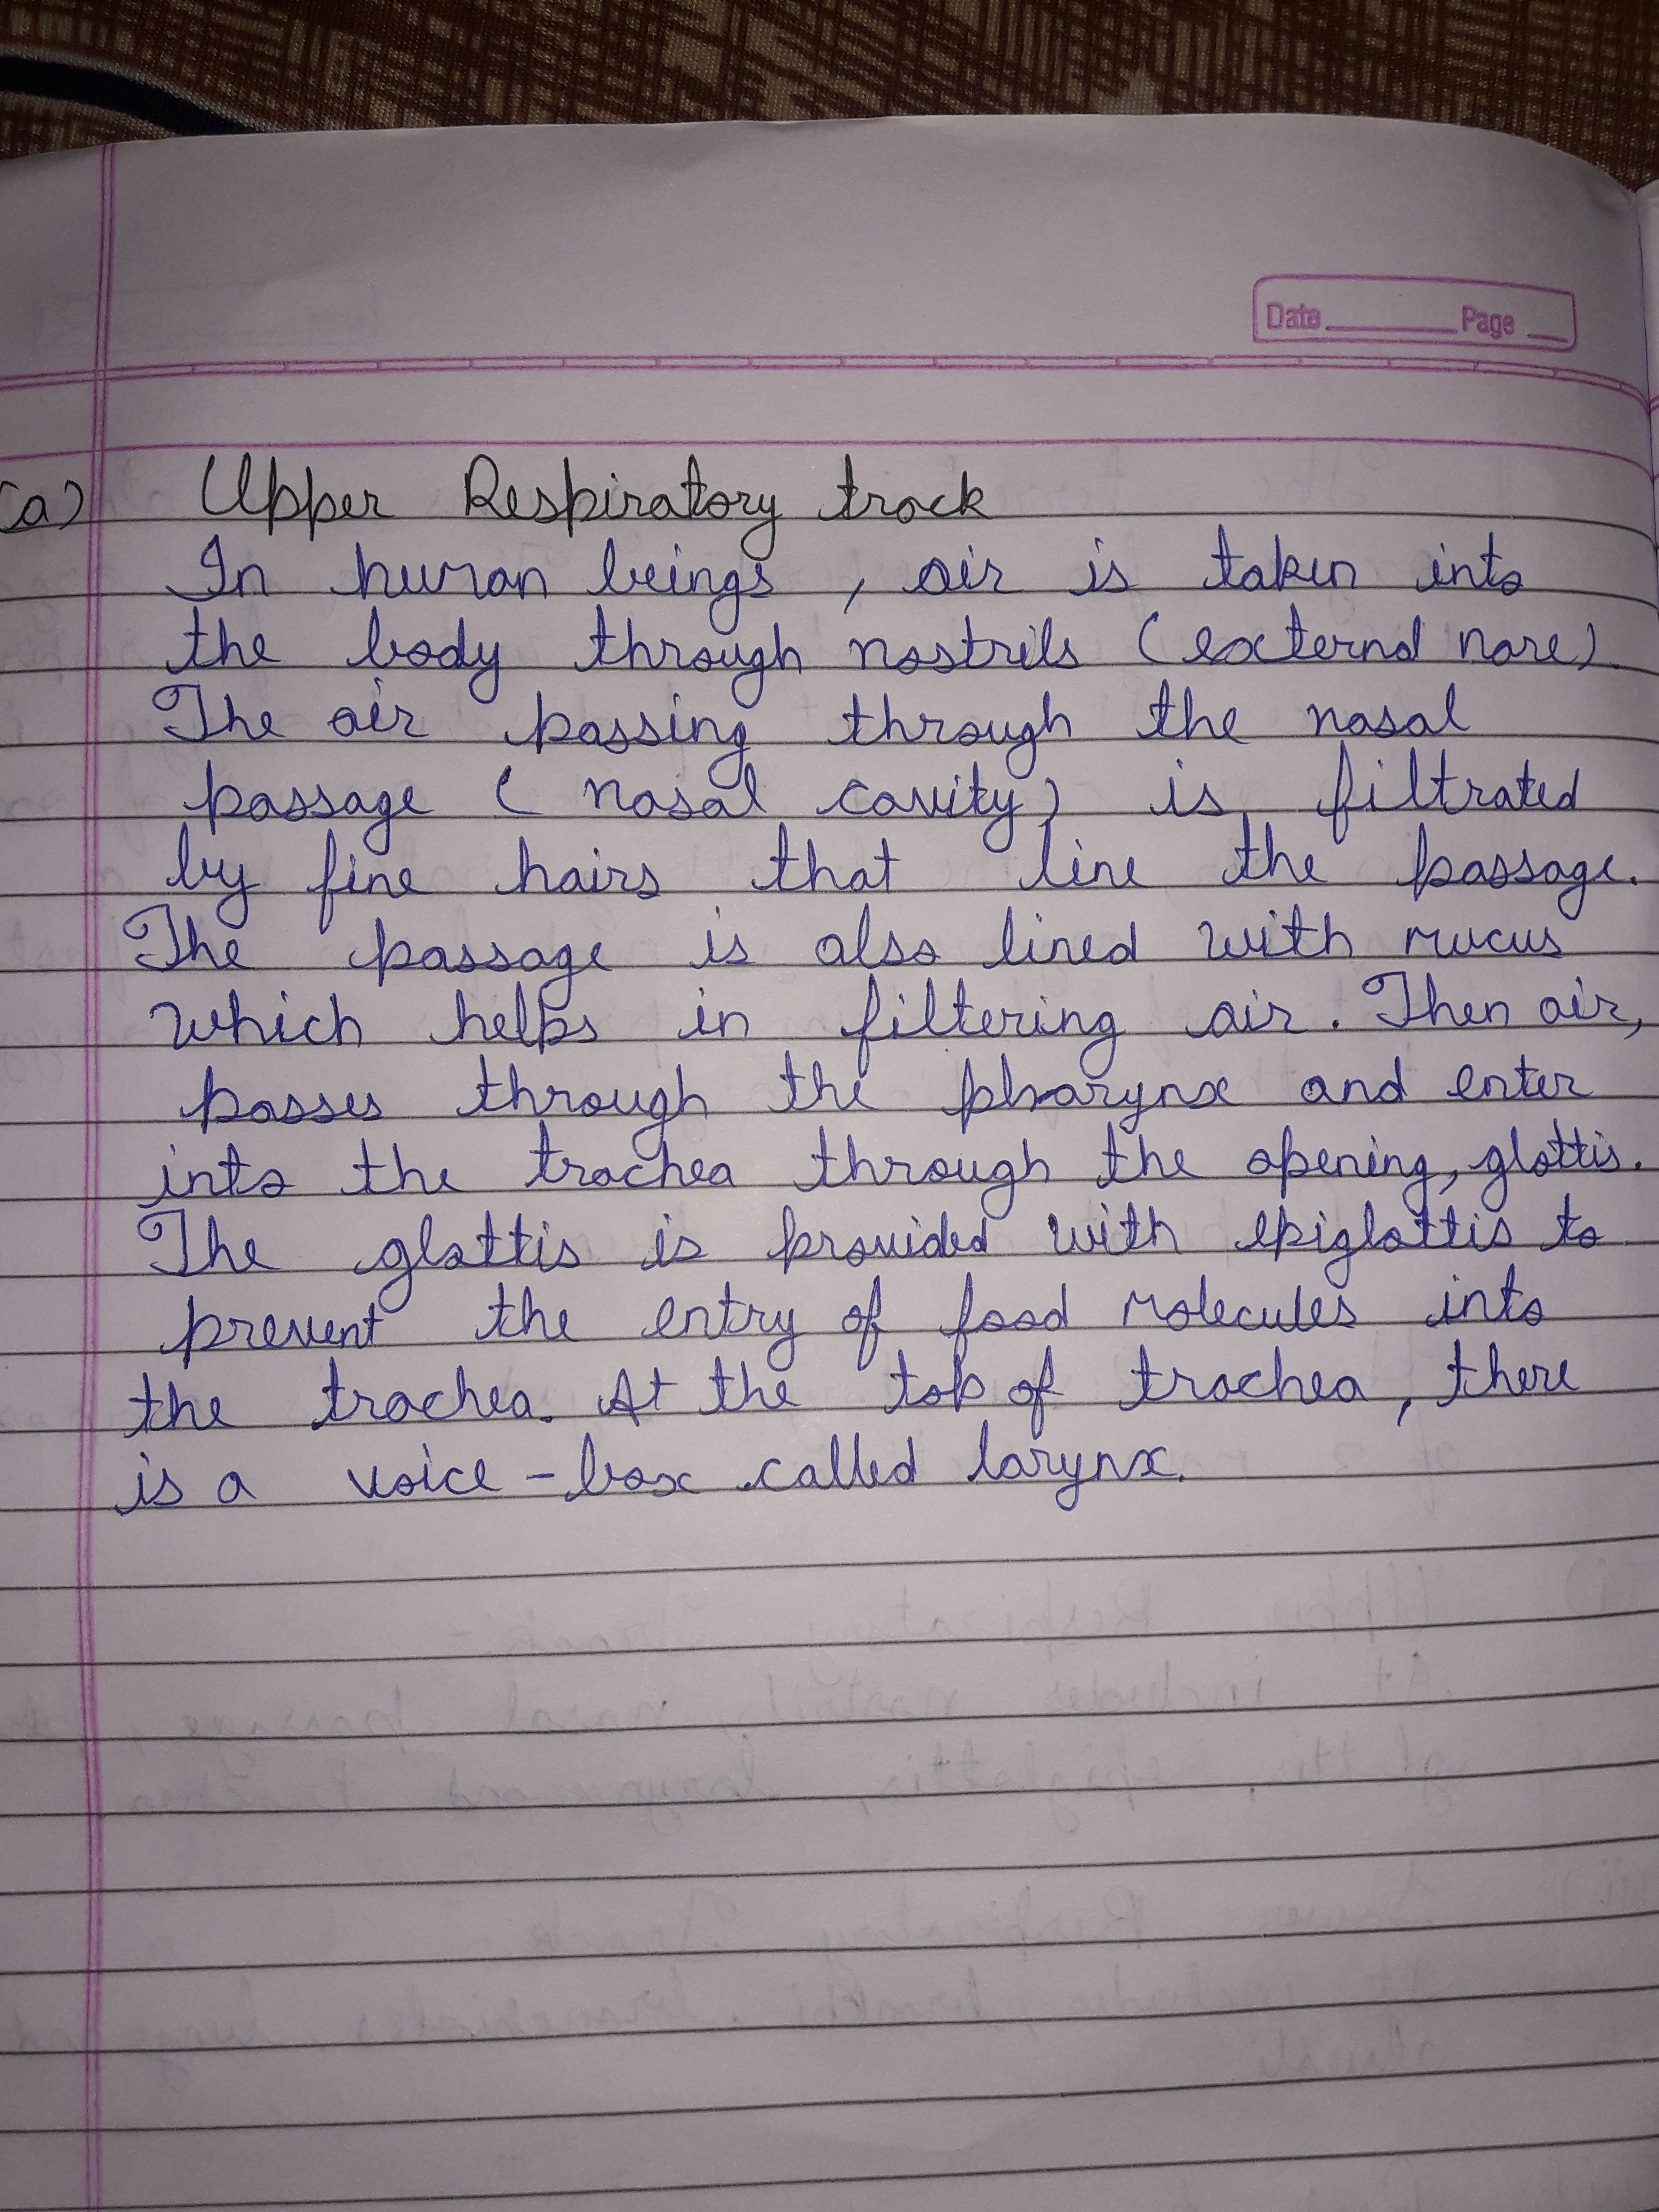 Date Page
(a) Upper Respiratory track
In human beings, air is taken into
the body through nostrils (external nare).
The air passing through the nasal
passage (nasal cavity) is filtrated
by fine hairs that line the passage.
The passage is also lined with mucus
which helps in filtering air. Then air,
passes through the pharynx and enter
into the trachea through the opening, glottis.
The glottis is provided with epiglottis to
prevent the entry of food molecules into
the trachea. At the top of trachea, there
is a voice-box called larynx.